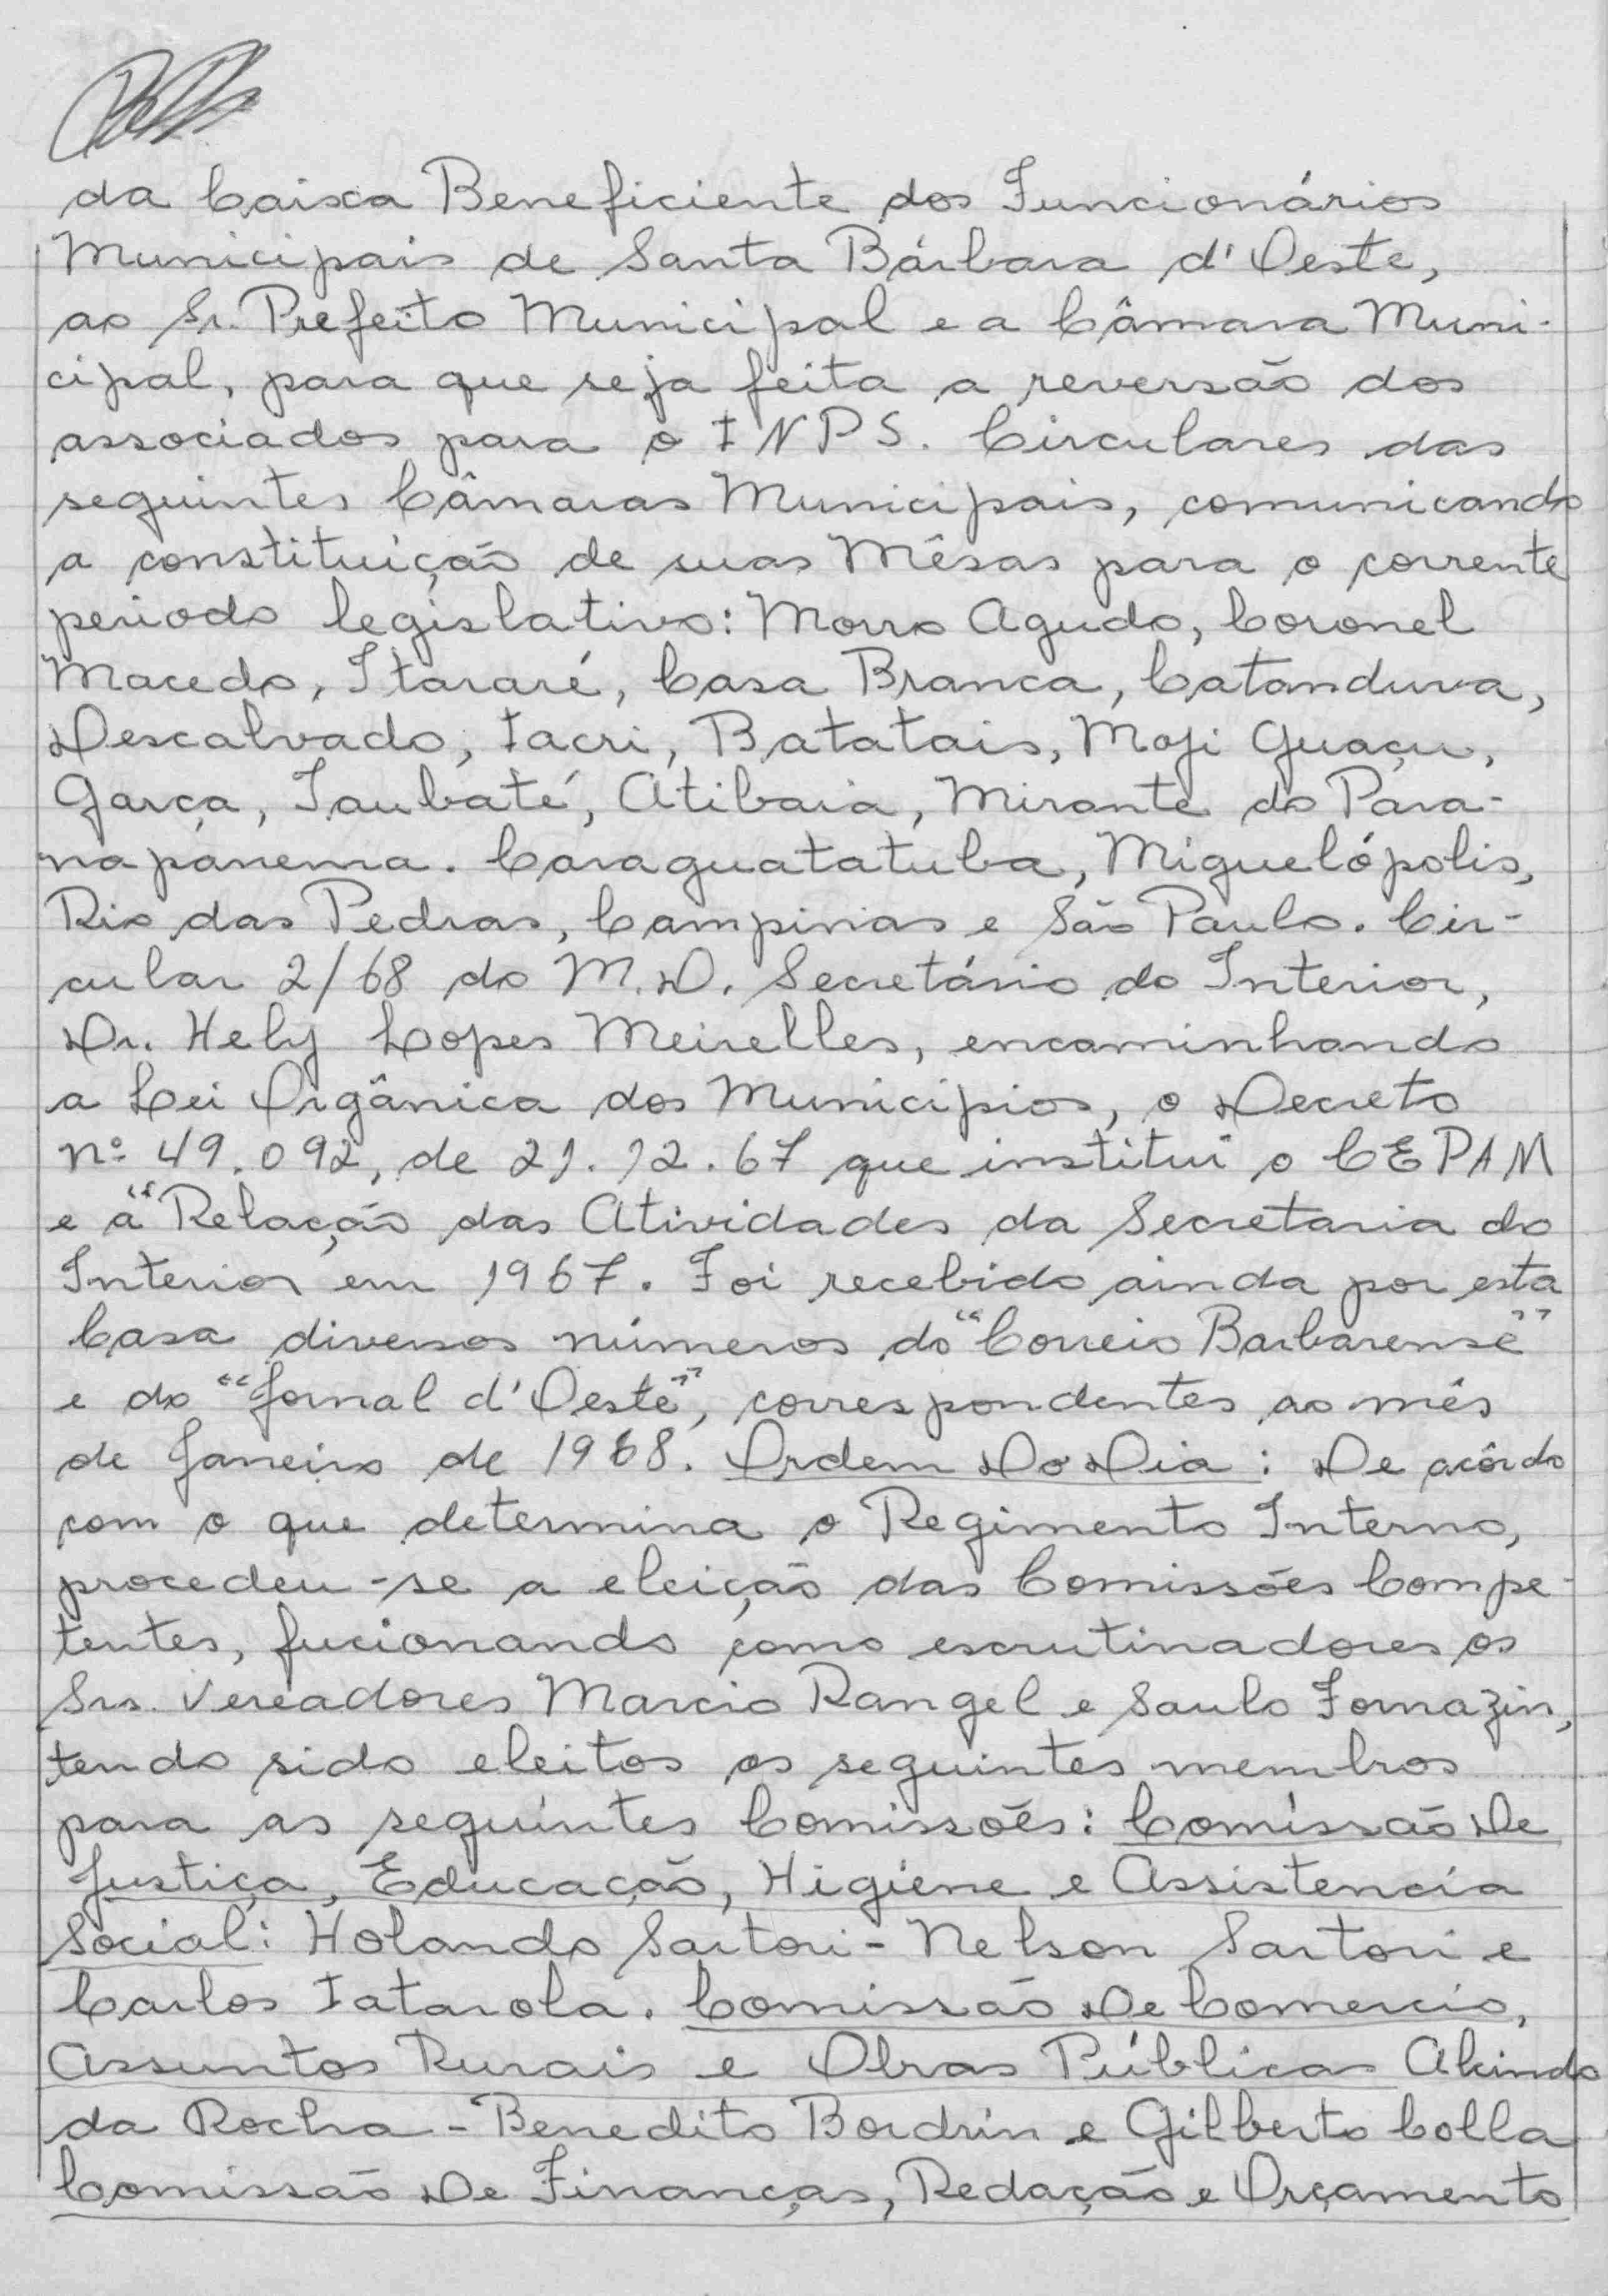 da Caixa Beneficiente dos Funcionários
Municipais de Santa Bárbara d'Oeste,
ao Sr. Prefeito Municipal e a Câmara Muni-
cipal, para que seja feita a reversão dos
associados para o INPS. Circulares das
seguintes Câmaras Municipais, comunicando
a constituição de suas Mêsas para o corrente
periodo legislativo: Morro Agudo, Coronel
Macedo, Itararé, Casa Branca, Catanduva,
Descalvado, Iacri, Batatais, Moji Guaçu,
Garça, Taubaté, Atibaia, Mirante do Para-
napanema. Caraguatatuba, Miguelópolis,
Rio das Pedras, Campinas e São Paulo. Cir-
cular 2/68 do M.D. Secretário do Interior,
Dr. Hely Lopes Meirelles, encaminhando
a Lei Orgânica dos Municipios, o Decreto
nº 49.092, de 21.12.67 que institui o CEPAM
e a "Relação das Atividades da Secretaria do
Interior em 1967. Foi recebido ainda por esta
Casa diversos números do "Correio Barbarense"
e do "Jornal d'Oeste", correspondentes ao mês
de Janeiro de 1968. Ordem Do Dia: De acôrdo
com o que determina o Regimento Interno,
procedeu-se a eleição das Comissões Compe-
tentes, fucionando como escrutinadores os
Srs. Vereadores Marcio Rangel e Saulo Fornazin,
tendo sido eleitos os seguintes membros
para as seguintes Comissões: Comissão De
Justiça, Educação, Higiene e Assistencia
Social: Holando Sartori - Nelson Sartori e
Carlos Tatarola. Comissão De Comercio,
Assuntos Rurais e Obras Públicas Alcindo
da Rocha - Benedito Bordrin e Gilberto Colla
Comissão De Finanças, Redação e Orçamento